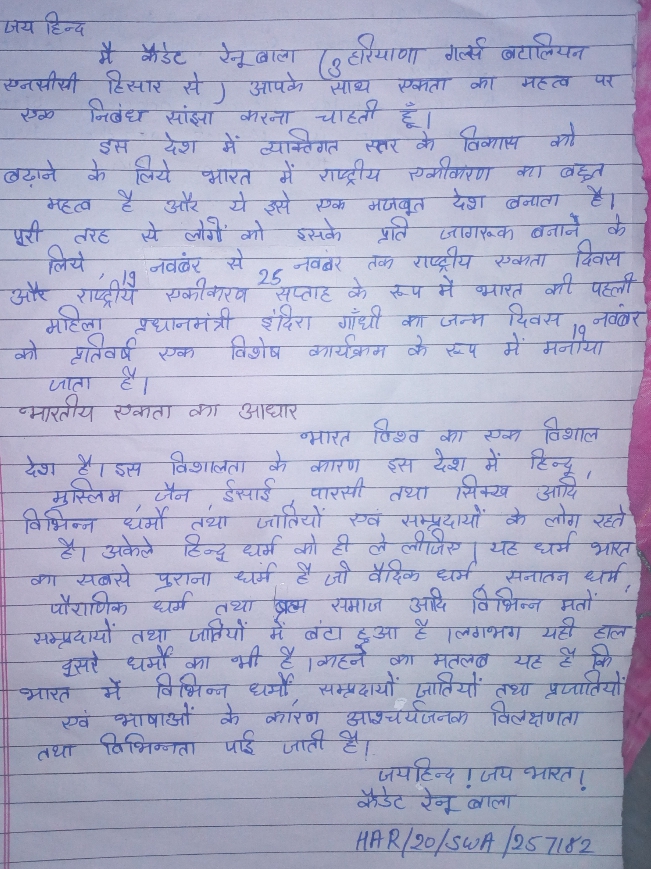 जय हिन्द
मै कैडेट रेनू बाला (3 हरियाणा गर्ल्स बटालियन
एनसीसी हिसार से) आपके साथ एकता का महत्व पर
एक निबंध सांझा करना चाहती हूँ।
इस देश में व्यक्तिगत स्तर के विकास को
बढ़ाने के लिये भारत में राष्ट्रीय एकीकरण का बहुत
महत्व है और ये इसे एक मजबूत देश बनाता है।
पूरी तरह से लोगों को इसके प्रति जागरूक बनाने के
लिये, 19 नवबंर से 25 नवबंर तक राष्ट्रीय एकता दिवस
और राष्ट्रीय एकीकरण सप्ताह के रूप में भारत की पहली
महिला प्रधानमंत्री इंदिरा गाँधी का जन्म दिवस 19 नवबंर
को प्रतिवर्ष एक विशेष कार्यक्रम के रूप में मनाया
जाता है।
भारतीय एकता का आधार
भारत विश्व का एक विशाल
देश है। इस विशालता के कारण इस देश में हिन्दू,
मुस्लिम, जैन, ईसाई, पारसी तथा सिक्ख आदि
विभिन्न धर्मों तथा जातियों एवं सम्प्रदायों के लोग रहते
है। अकेले हिन्दू धर्म को ही ले लीजिए। यह धर्म भारत
का सबसे पुराना धर्म है जो वैदिक धर्म, सनातन धर्म,
पौराणिक धर्म तथा ब्रह्म समाज आदि विभिन्न मतों
सम्प्रदायों तथा जातियों में बंटा हुआ है। लगभग यही हाल
दूसरे धर्मों का भी है। कहने का मतलब यह है कि
भारत में विभिन्न धर्मों, सम्प्रदायों जातियों तथा प्रजातियों
एवं भाषाओं के कारण आश्चर्यजनक विलक्षणता
तथा विभिन्नता पाई जाती है।
जयहिन्द! जय भारत!
कैडेट रेनू बाला
HAR/20/SWA/257182